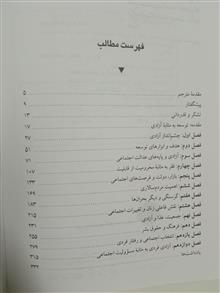 فهرست مطالب
مقدمهٔ مترجم ۵
پیشگفتار ۹
تشکر و قدردانی ۱۳
مقدمه: توسعه به مثابهٔ آزادی ۱۷
فصل اول: چشم‌انداز آزادی ۲۷
فصل دوم: هدف و ابزارهای توسعه ۵۱
فصل سوم: آزادی و پایه‌های عدالت اجتماعی ۷۱
فصل چهارم: فقر به مثابهٔ محرومیت از قابلیت ۱۰۷
فصل پنجم: بازار، دولت و فرصت‌های اجتماعی ۱۳۳
فصل ششم: اهمیت مردم‌سالاری ۱۶۹
فصل هفتم: گرسنگی و دیگر بحران‌ها ۱۸۳
فصل هشتم: نقش فاعلی زنان و تغییرات اجتماعی ۲۱۵
فصل نهم: جمعیت، غذا و آزادی ۲۳۱
فصل دهم: فرهنگ و حقوق بشر ۲۵۵
فصل یازدهم: انتخاب اجتماعی و رفتار فردی ۲۷۹
فصل دوازدهم: آزادی فردی به مثابهٔ مسؤولیت اجتماعی ۳۱۵
یادداشت‌ها ۳۳۲